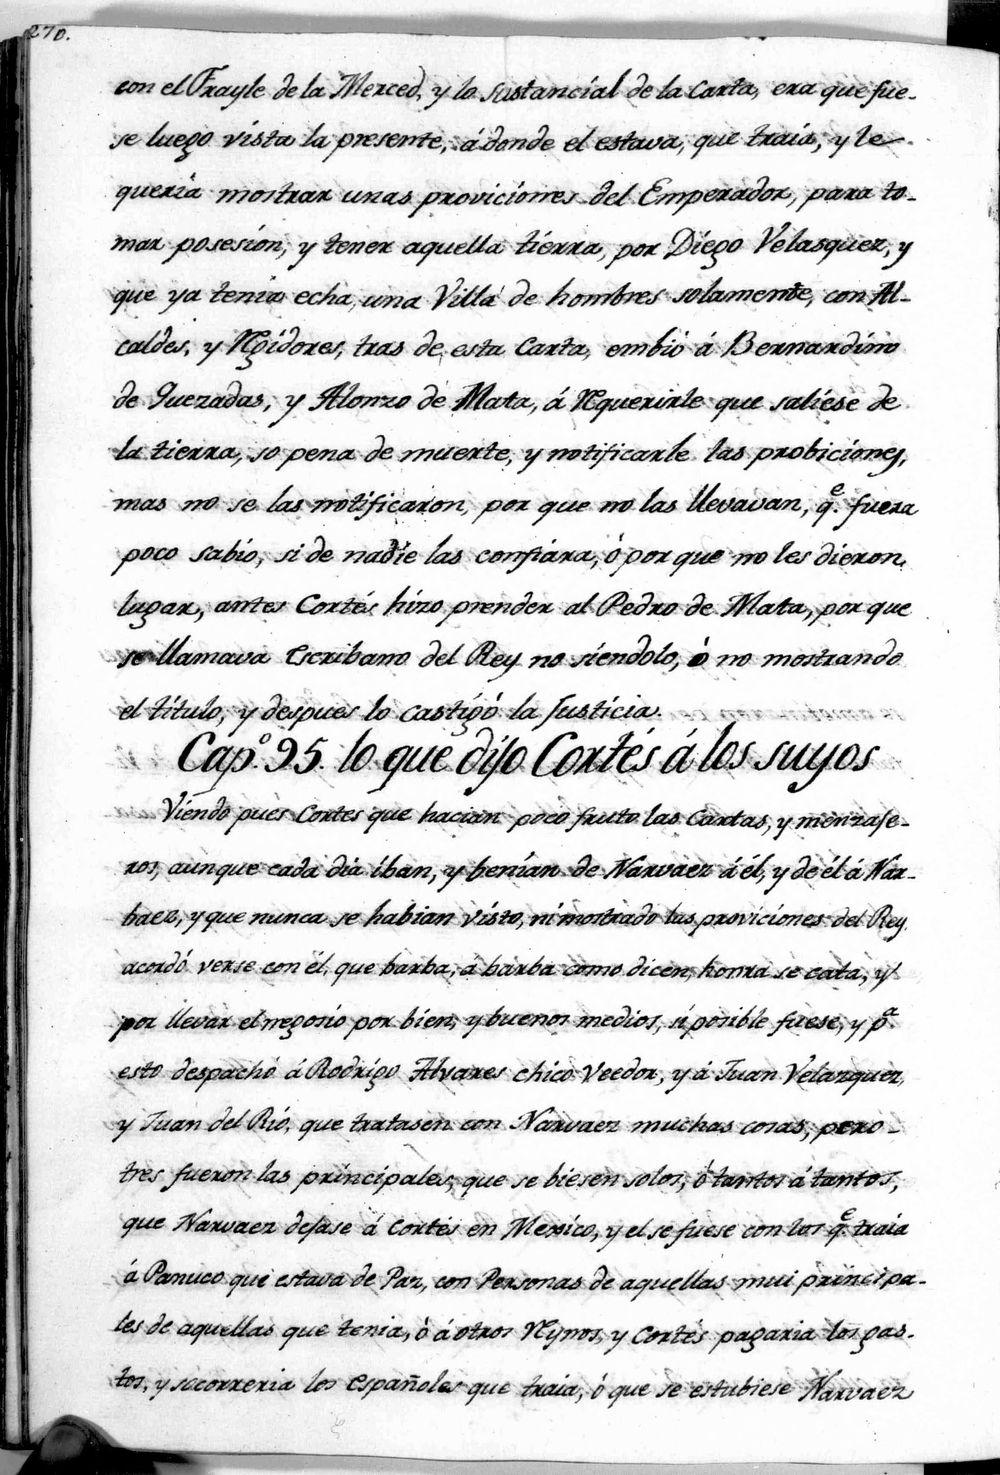 270.
con el Frayle de la Merced, y lo sustancial de la Carta, era que fue-
se luego vista la presente, á donde el estava, que traia, y le
queria mostrar unas proviciones del Emperador, para to-
mar posesion, y tener aquella tierra, por Diego Velasquez, y
que ya tenia echa, una Villa de hombres solamente, con Al-
caldes, y Rgidores, tras de esta Carta, embió á Bernardino
de Quezadas, y Alonzo de Mata, á Rquerirle que saliese de
la tierra, so pena de muerte, y notificarle las probiciones,
mas no se las notificaron, por que no las llevavan, q.e fuera
poco sabio, si de nadie las confiara, ó por que no les dieron
lugar, antes Cortés hizo prender al Pedro de Mata, por que
se llamava Escribano del Rey no siendolo, ó no mostrando
el titulo, y despues lo castigó la Justicia.
Cap.º 95. lo que dijo Cortés á los suyos
Viendo pues Cortes que hacian poco fruto las Cartas, y menzaje-
ros, aunque cada dia iban, y benían de Narvaez á él, y de él á Nar-
baez, y que nunca se habian visto, ni mostrado las proviciones del Rey
acordó verse con él, que barba, á barba como dicen, honra se cata, y
por llevar el negosio por bien, y buenos medios, si posible fuese, y p.a
esto despachó á Rodrigo Alvares chico Veedor, y á Juan Velazquez,
y Juan del Rió, que tratasen con Narvaez muchas cosas, pero
tres fueron las principales, que se biesen solos, ó tantos á tantos,
que Narvaez dejase á Cortés en Mexico, y el se fuese con los q.e traia
á Panuco que estava de Paz, con Personas de aquellas mui principa-
les de aquellas que tenia, ó á otros Rynos, y Cortés pagaria los gas-
tos, y socorreria los españoles que traia, ó que se estubiese Narvaez